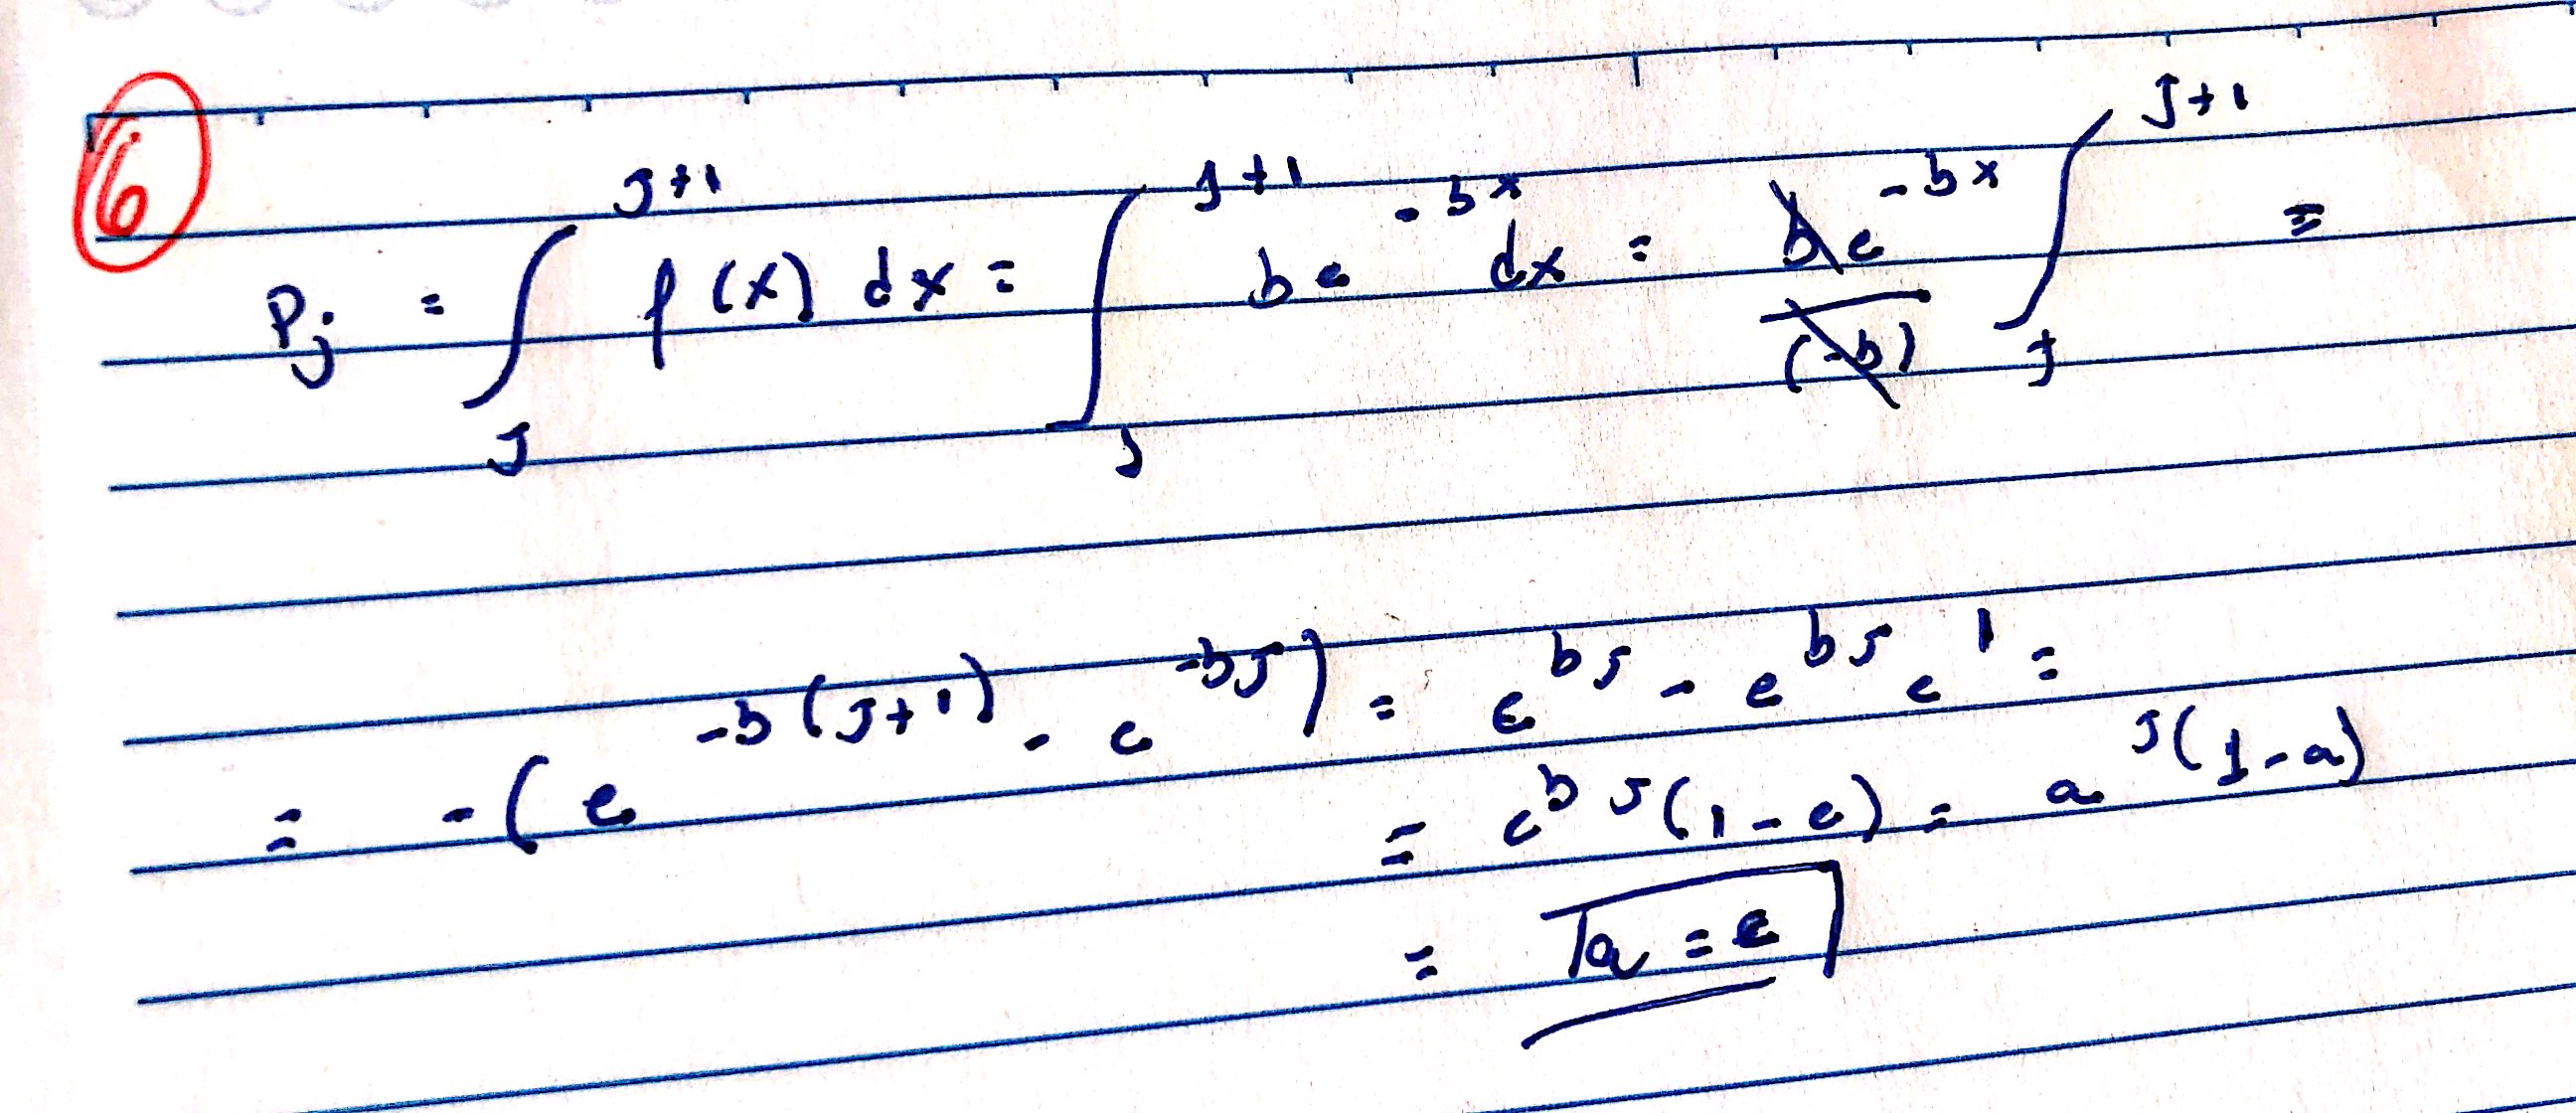 6
P_j = ∫_J^{J+1} f(x) dx = ∫_J^{J+1} b e^{-bx} dx = b e^{-bx} / (-b) ∫_J^{J+1} =
= -(e^{-b(J+1)} - e^{-bJ}) = e^{bJ} - e^{bJ} e^1 =
= e^{bJ}(1-e) = a^{J(1-a)}
= a = e